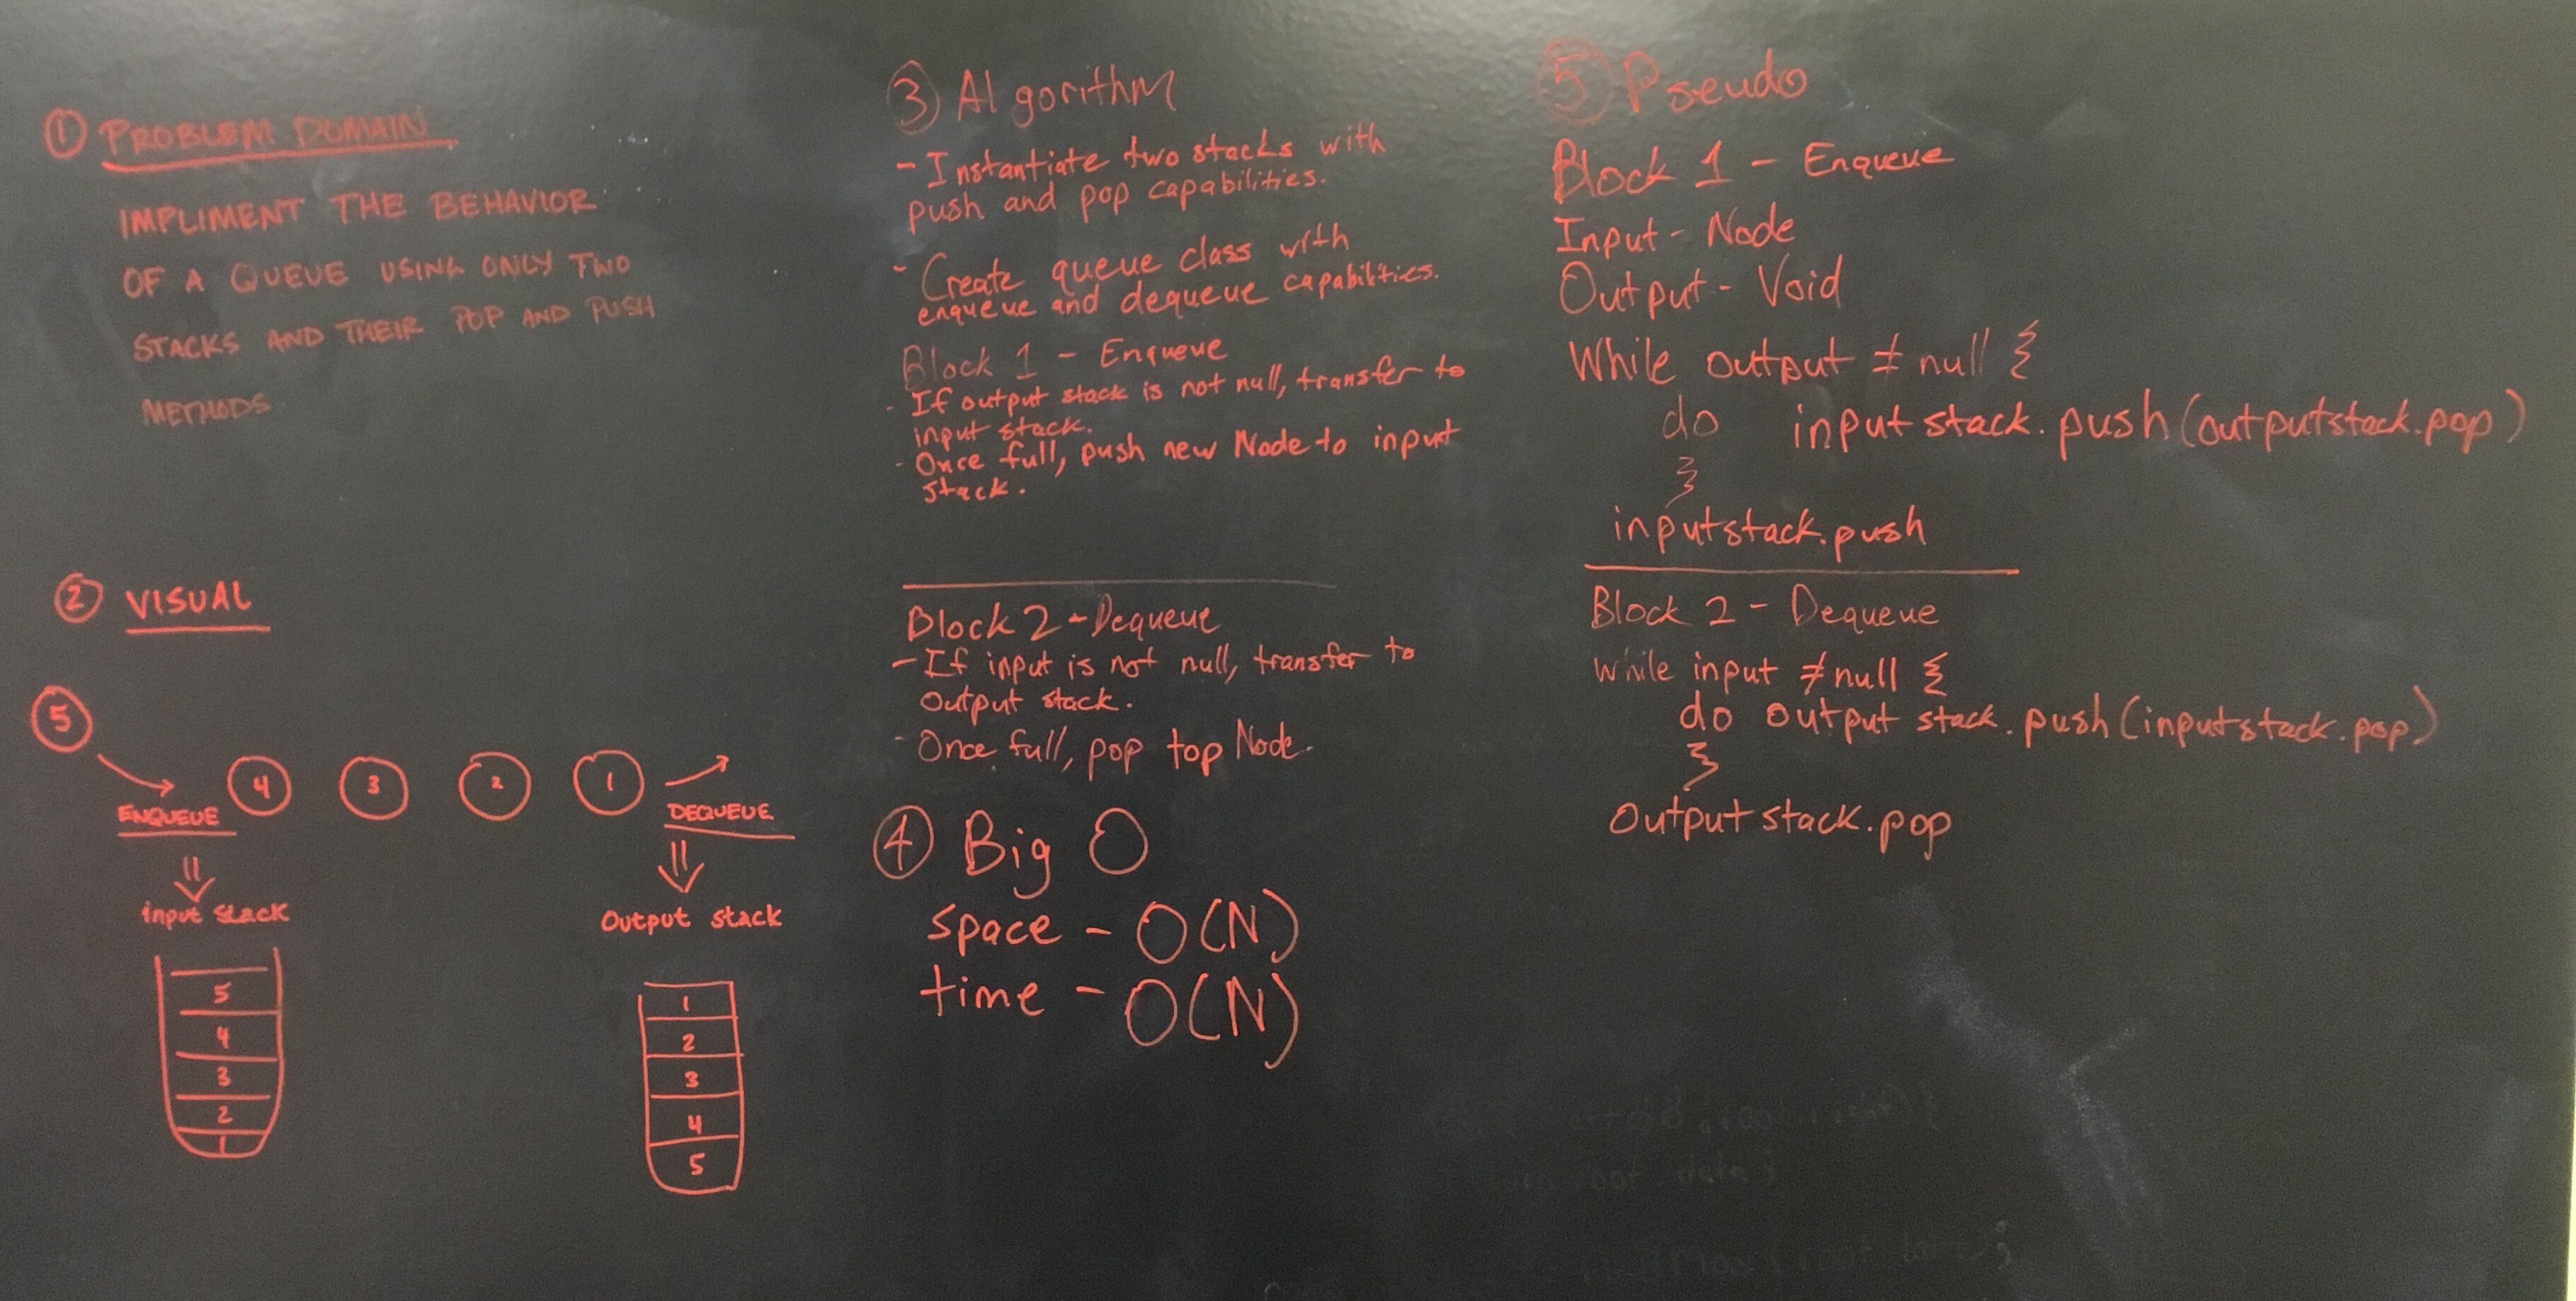 ① PROBLEM DOMAIN
IMPLIMENT THE BEHAVIOR
OF A QUEUE USING ONLY TWO
STACKS AND THEIR POP AND PUSH
METHODS
② VISUAL
5
4 3 2 1
ENQUEUE
DEQUEUE
input stack
Output stack
5
4
3
2
1
1
2
3
4
5
③ Algorithm
- Instantiate two stacks with
push and pop capabilities.
- Create queue class with
enqueue and dequeue capabilities.
Block 1 - Enqueue
- If output stack is not null, transfer to
input stack.
- Once full, push new Node to input
stack.
Block 2 - Dequeue
- If input is not null, transfer to
Output stack.
- Once full, pop top Node.
④ Big O
space - O(N)
time - O(N)
⑤ Pseudo
Block 1 - Enqueue
Input - Node
Output - Void
While output ≠ null {
do input stack.push(outputstack.pop)
}
inputstack.push
Block 2 - Dequeue
While input ≠ null {
do output stack.push(inputstack.pop)
}
Output stack.pop